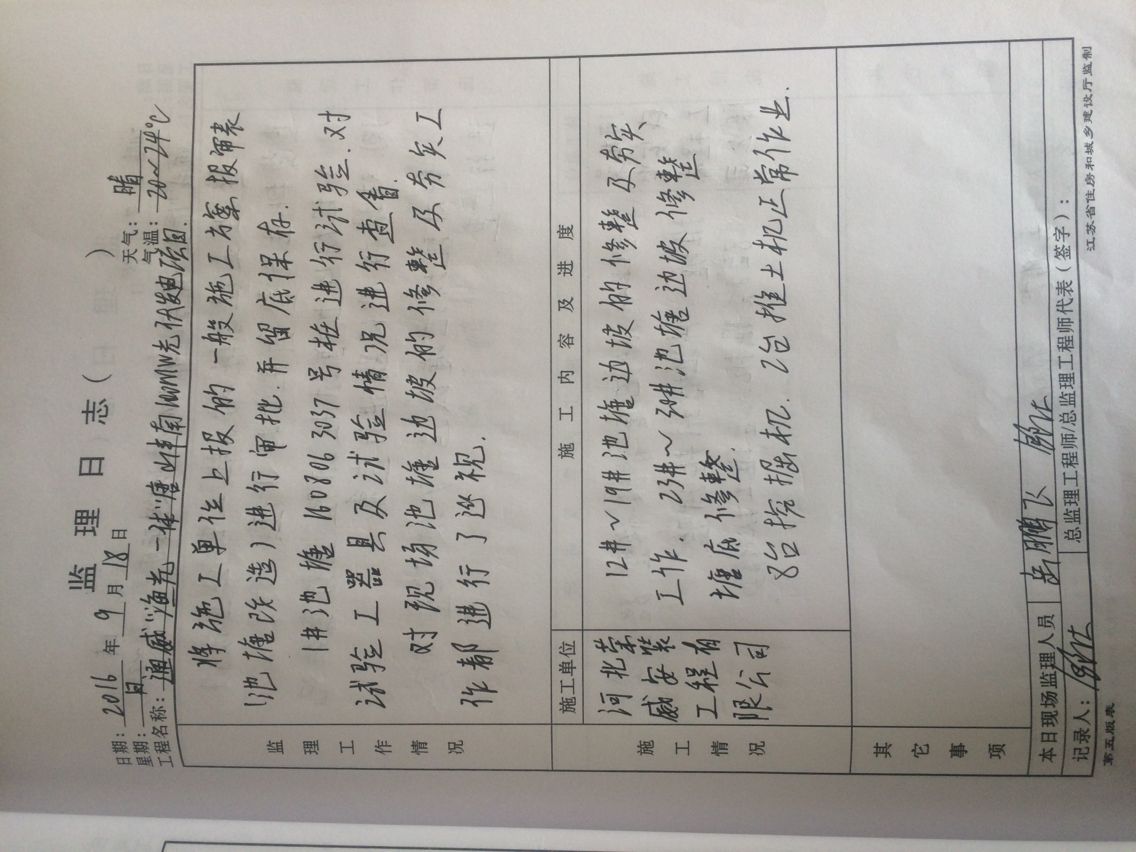 监理日志( )
日期: 2016 年 9 月 18 日 天气: 晴
星期: 日 气温: 20~24℃
工程名称: 通威“渔光一体”唐山丰南100MW光伏发电项目
监理工作情况
将施工单位上报的一般施工方案报审表
(池塘改造)进行审批.并留底保存.
1#池塘160806 3037号桩进行试验.对
试验工器具及试验情况进行查看.
对现场池塘边坡的修整及夯实工
作都进行了巡视.
施工单位 施工内容及进度
施工情况
河北荣
威安装
工程有
限公司
12#~19#池塘边坡的修整及夯实
工作. 23#~30#池塘边坡修整
塘底修整.
8台挖掘机.2台推土机正常作业.
其它事项
本日现场监理人员 鹏飞
记录人: 总监理工程师/总监理工程师代表(签字):
第五版表 江苏省住房和城乡建设厅监制